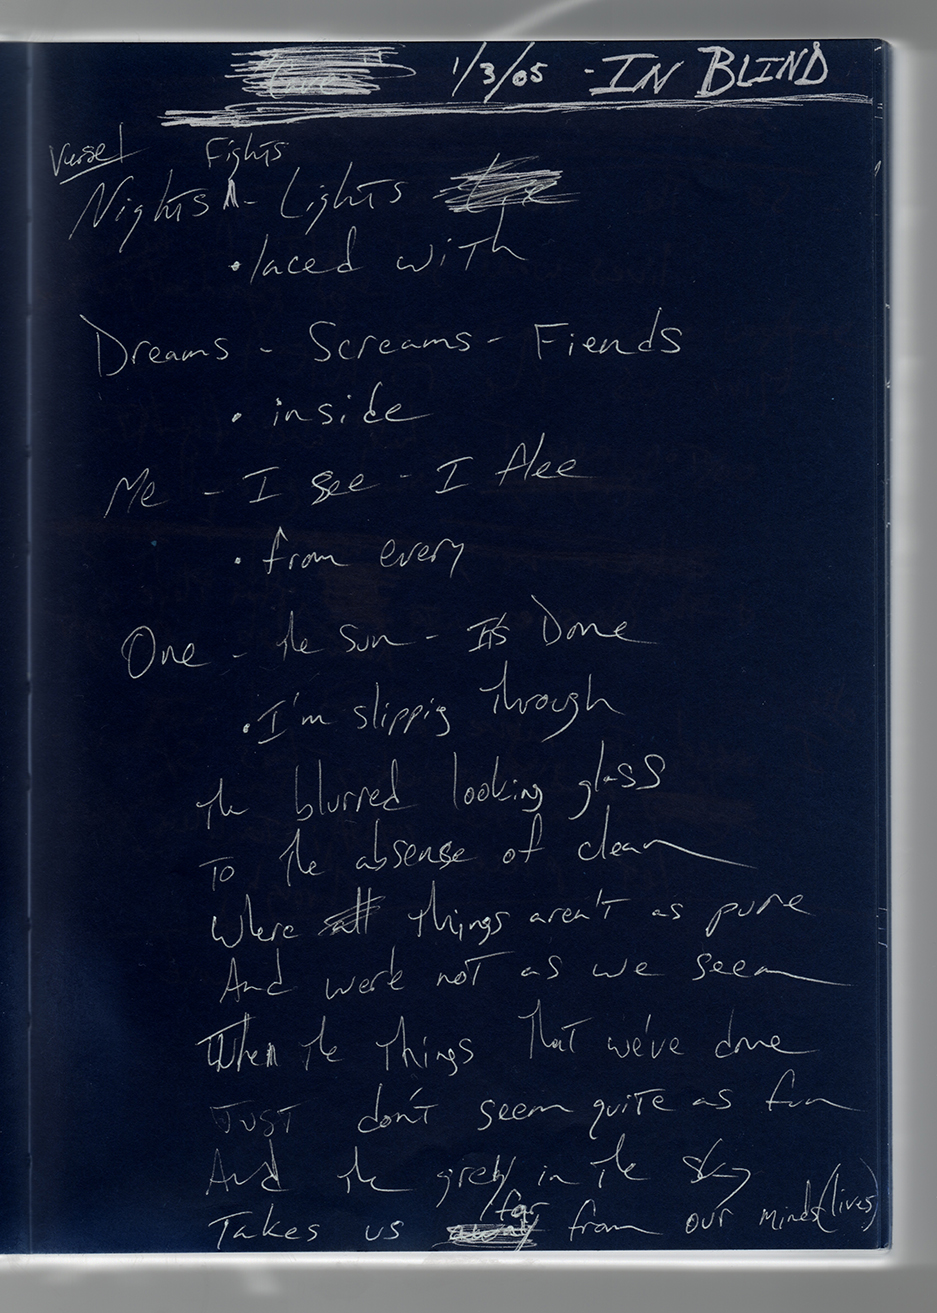 1/3/05 - IN BLIND
Verse 1 Fights
Nights ^ - Lights
• laced with
Dreams - Screams - Fiends
• inside
Me - I see - I flee
• from every
One - the sun - It's Done
• I'm slippig through
the blurred looking glass
To the absense of clean
Where all things aren't as pure
And we're not as we seem
When the things that we've done
Just don't seem quite as fun
And the grey in the sky
/far
Takes us away from our minds (lives)